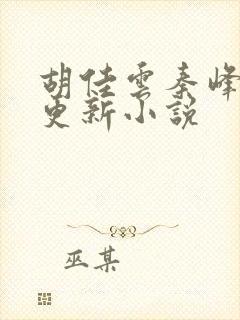 胡佳雲秦峰
更新小說
巫某